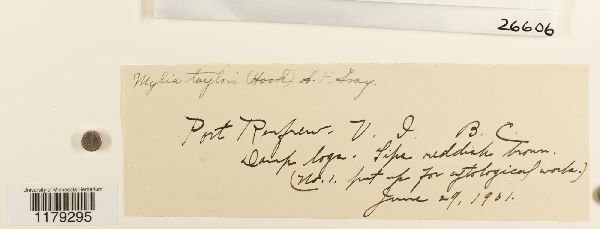 26606
Mylia taylori (Hook) S. F. Gray.
Port Renfrew. V. I. B. C.
Damp logs. Tips reddish brown.
(No. 1. put up for cytological work.)
June 29, 1901.
University of Minnesota Herbarium
1179295